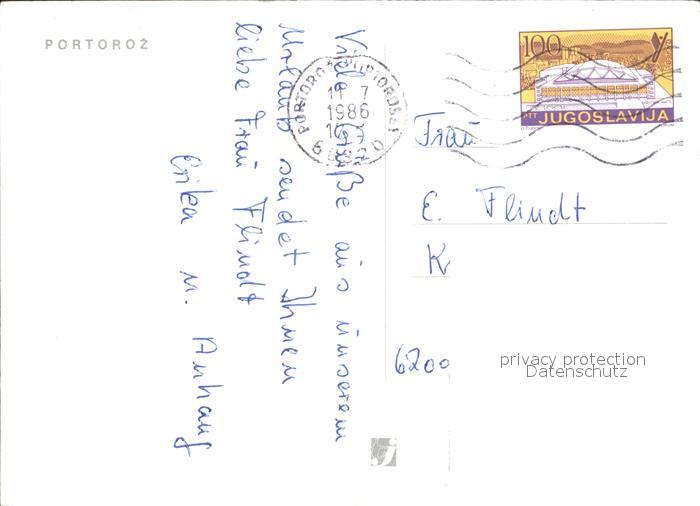 PORTOROŽ
Viele Grüße aus unserem
Urlaub sendet Ihnen
liebe Frau Flindt
Erika u. Anhang
PORTOROŽ PORTOROSE
11 7
1986
6
100
PTT JUGOSLAVIJA
Frau
E. Flindt
K
6200
privacy protection
Datenschutz